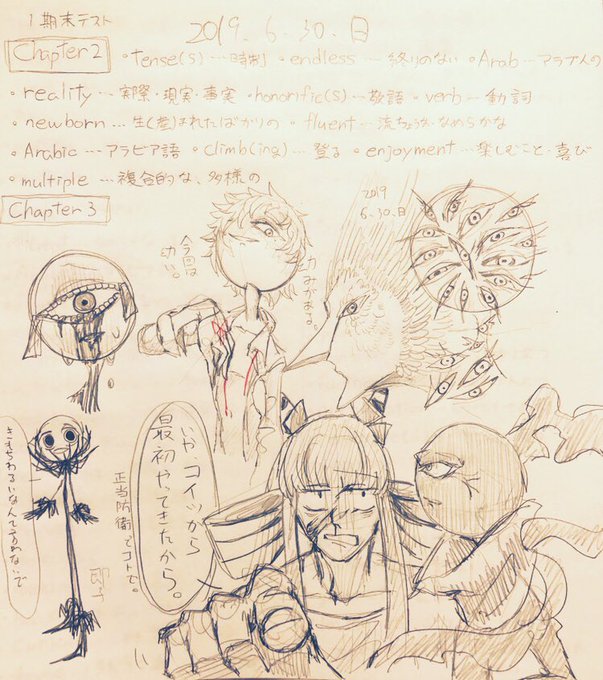 1期末テスト
2019.6.30.日
Chapter 2
・tense(s)…時制 ・endless…終りのない ・Arab…アラブ人の
・reality…実際・現実・事実 ・honorific(s)…敬語 ・verb…動詞
・newborn…生(産)まれたばかりの ・fluent…流ちょうな・なめらかな
・Arabic…アラビア語 ・climb(ing)…登る ・enjoyment…楽しむこと・喜び
・multiple…複合的な、多様の
Chapter 3
2019
6.30.日
今回は
みがある。
いやコイツから
最初やてきたから。
正当防衛てコトで。
きもちわるいなんて言わないで